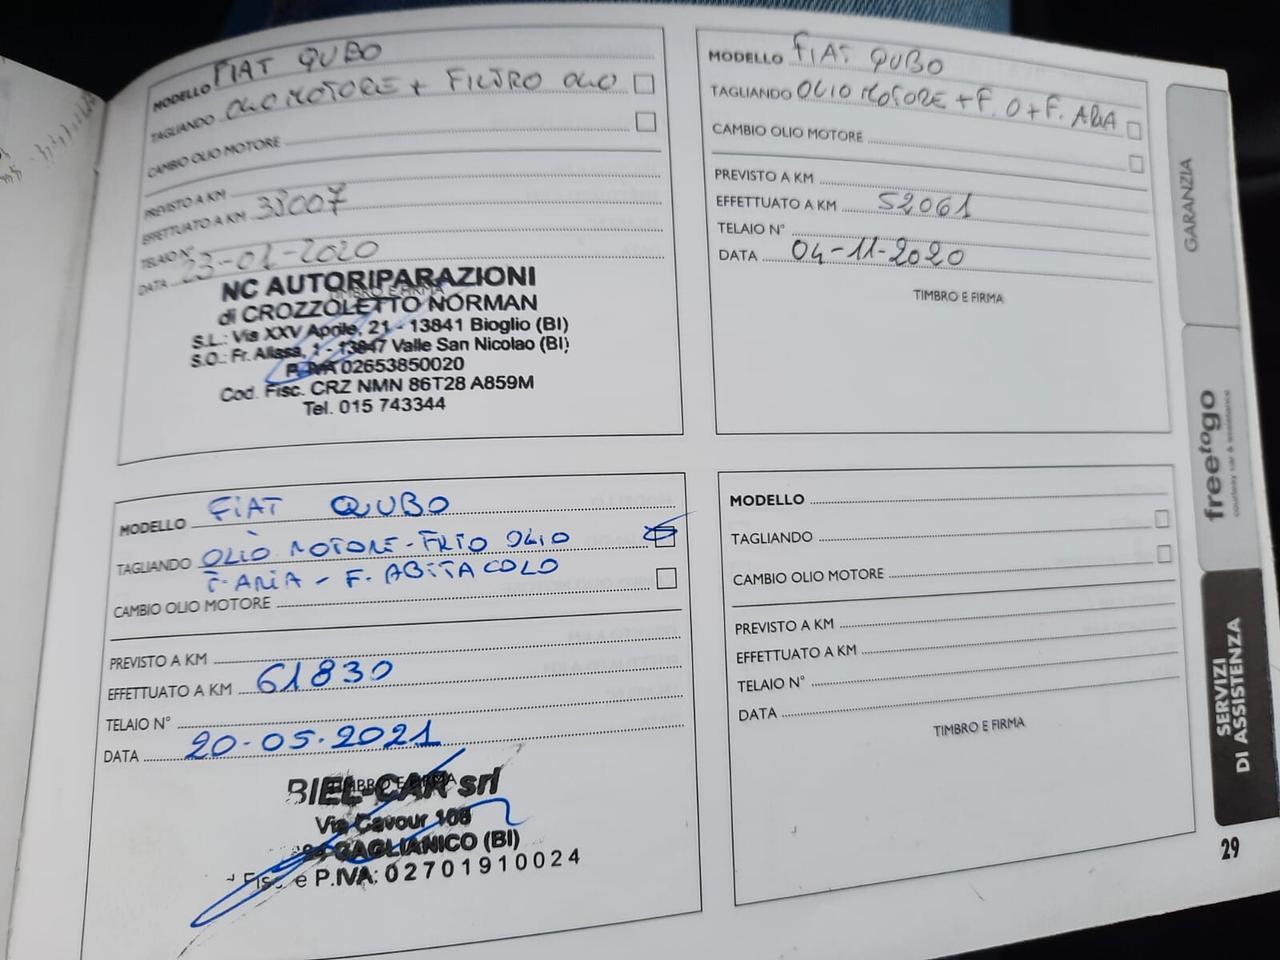 MODELLO FIAT QUBO
TAGLIANDO OLIO MOTORE + FILTRO OLIO
CAMBIO OLIO MOTORE
PREVISTO A KM
EFFETTUATO A KM 38007
TELAIO N°
DATA 23-01-2020
TIMBRO E FIRMA
NC AUTORIPARAZIONI
di CROZZOLETTO NORMAN
S.L.: Via XXV Aprile, 21 - 13841 Bioglio (BI)
S.O.: Fr. Alissa, 1 - 13847 Valle San Nicolao (BI)
P. IVA 02653850020
Cod. Fisc. CRZ NMN 86T28 A859M
Tel. 015 743344
MODELLO FIAT QUBO
TAGLIANDO OLIO MOTORE + F. O + F. ARIA
CAMBIO OLIO MOTORE
PREVISTO A KM
EFFETTUATO A KM 52061
TELAIO N°
DATA 04-11-2020
TIMBRO E FIRMA
MODELLO FIAT QUBO
TAGLIANDO OLIO MOTORE - FILTO OLIO
F. ARIA - F. ABITACOLO
CAMBIO OLIO MOTORE
PREVISTO A KM
EFFETTUATO A KM 61830
TELAIO N°
DATA 20-05-2021
TIMBRO E FIRMA
BIEL-CAR srl
Via Cavour 108
GAGLIANICO (BI)
e P.IVA: 02701910024
MODELLO
TAGLIANDO
CAMBIO OLIO MOTORE
PREVISTO A KM
EFFETTUATO A KM
TELAIO N°
DATA
TIMBRO E FIRMA
GARANZIA
freetogo
courtesy car & assistance
SERVIZI
DI ASSISTENZA
29